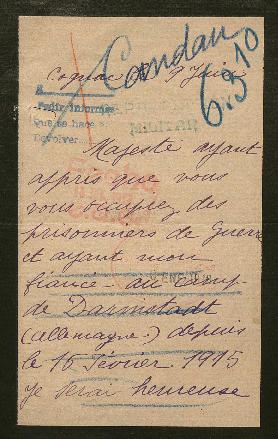 Candau
6.910
Cognac 9 Juin
Pedir informes
que se hace
Devolver
MILITAR
Majesté ayant
appris que vous
vous occupez des
prisonniers de Guerre
et ayant mon
fiancé au camp
de Darmstadt
(allemagne) depuis
le 16 février 1915
je serai heureuse